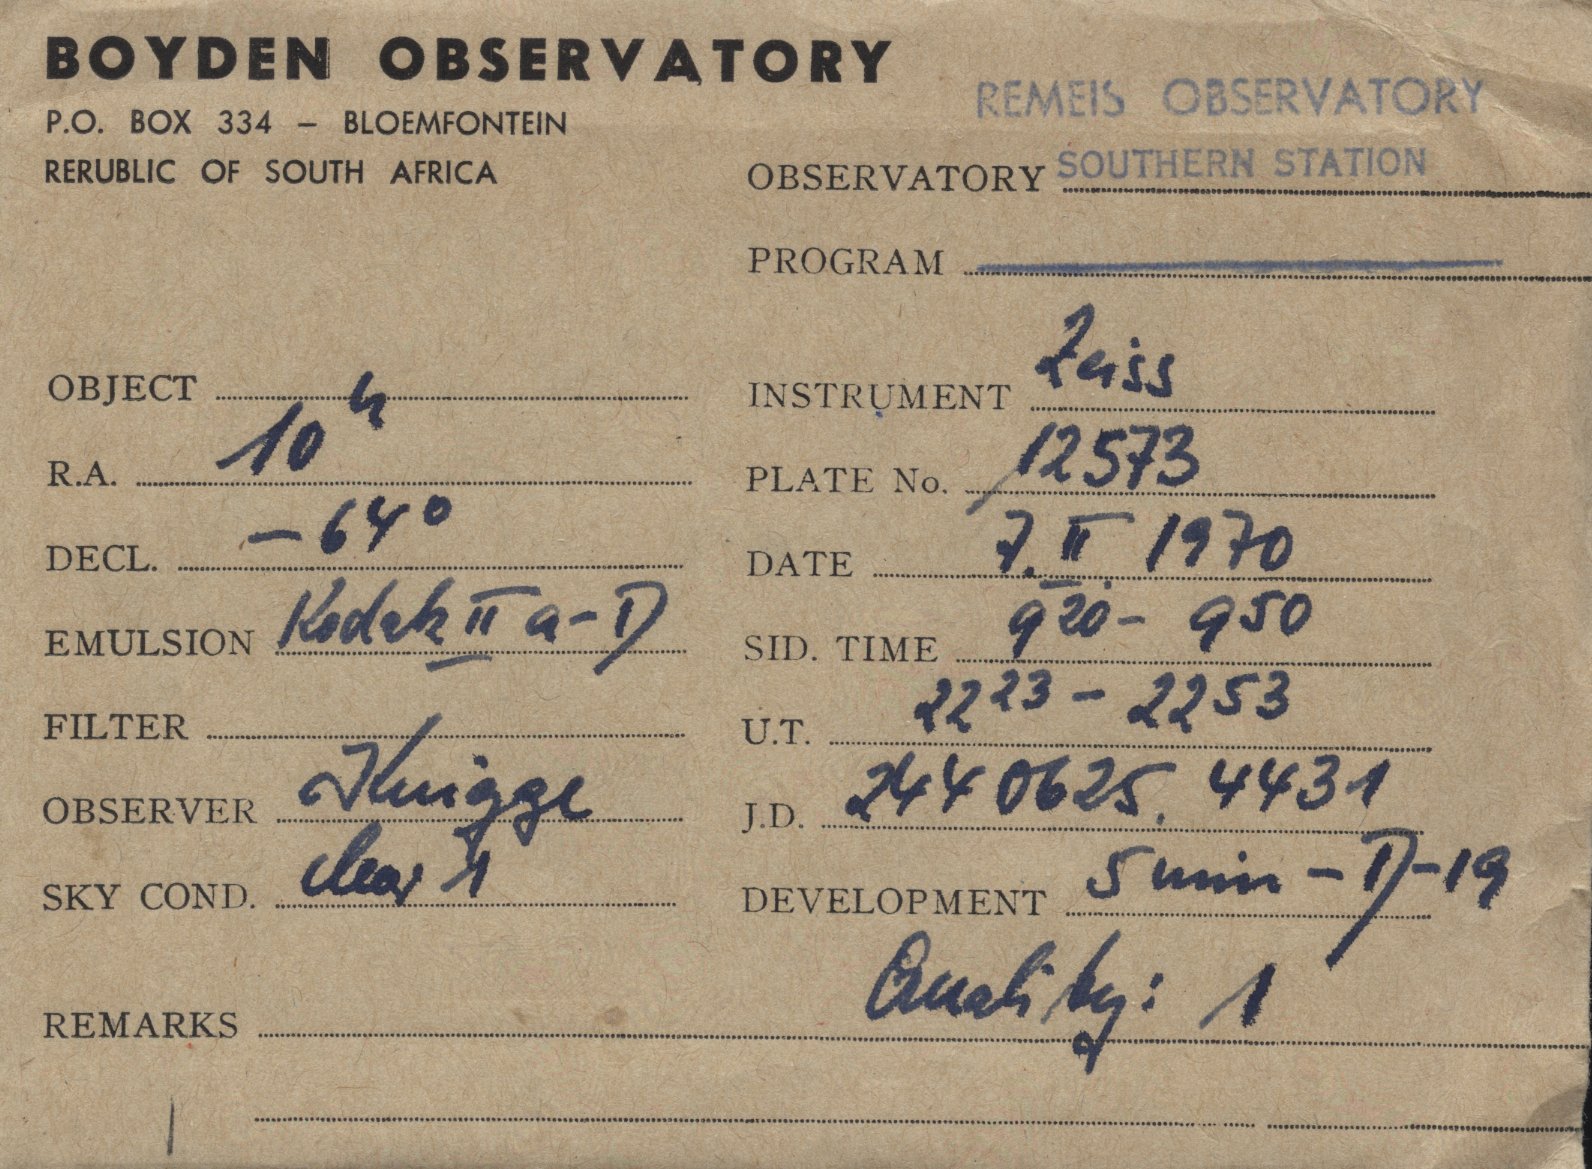 BOYDEN OBSERVATORY
P.O. BOX 334 – BLOEMFONTEIN
RERUBLIC OF SOUTH AFRICA
REMEIS OBSERVATORY
OBSERVATORY SOUTHERN STATION
PROGRAM
OBJECT
R.A. 10h
DECL. –64°
EMULSION Kodak II a–D
FILTER
OBSERVER Knigge
SKY COND. clear 1
INSTRUMENT Zeiss
PLATE No. 12573
DATE 7. II. 1970
SID. TIME 9 20 – 9 50
U.T. 22 23 – 22 53
J.D. 244 0625. 4431
DEVELOPMENT 5 min – D–19
Quality: 1
REMARKS